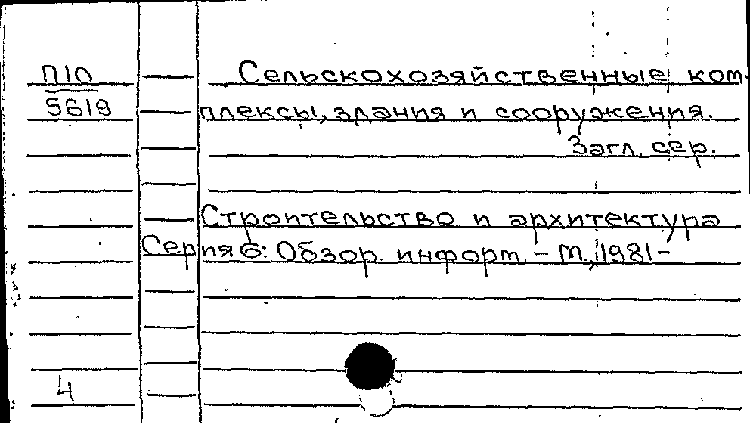 П10 Сельскохозяйственные ком-
5619 плексы, здания и сооружения.
Загл. сер.
Строительство и архитектура
Серия 6: Обзор. информ. – М., 1981 –
4